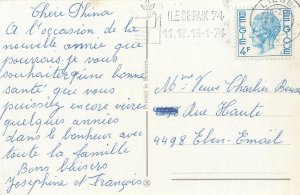 Chère Phina
A l'occasion de la
nouvelle année que
pourrais-je vous
souhaiter qu'une bonne
santé, que vous
puissiez encore vivre
quelques années
dans le bonheur avec
toute la famille
Bons baisers
Josephine et François
ILE DE PAIX 74
11.12.13-1-74
4F
Mme Veuve Charles
Rue Haute
4498 Eben-Emael